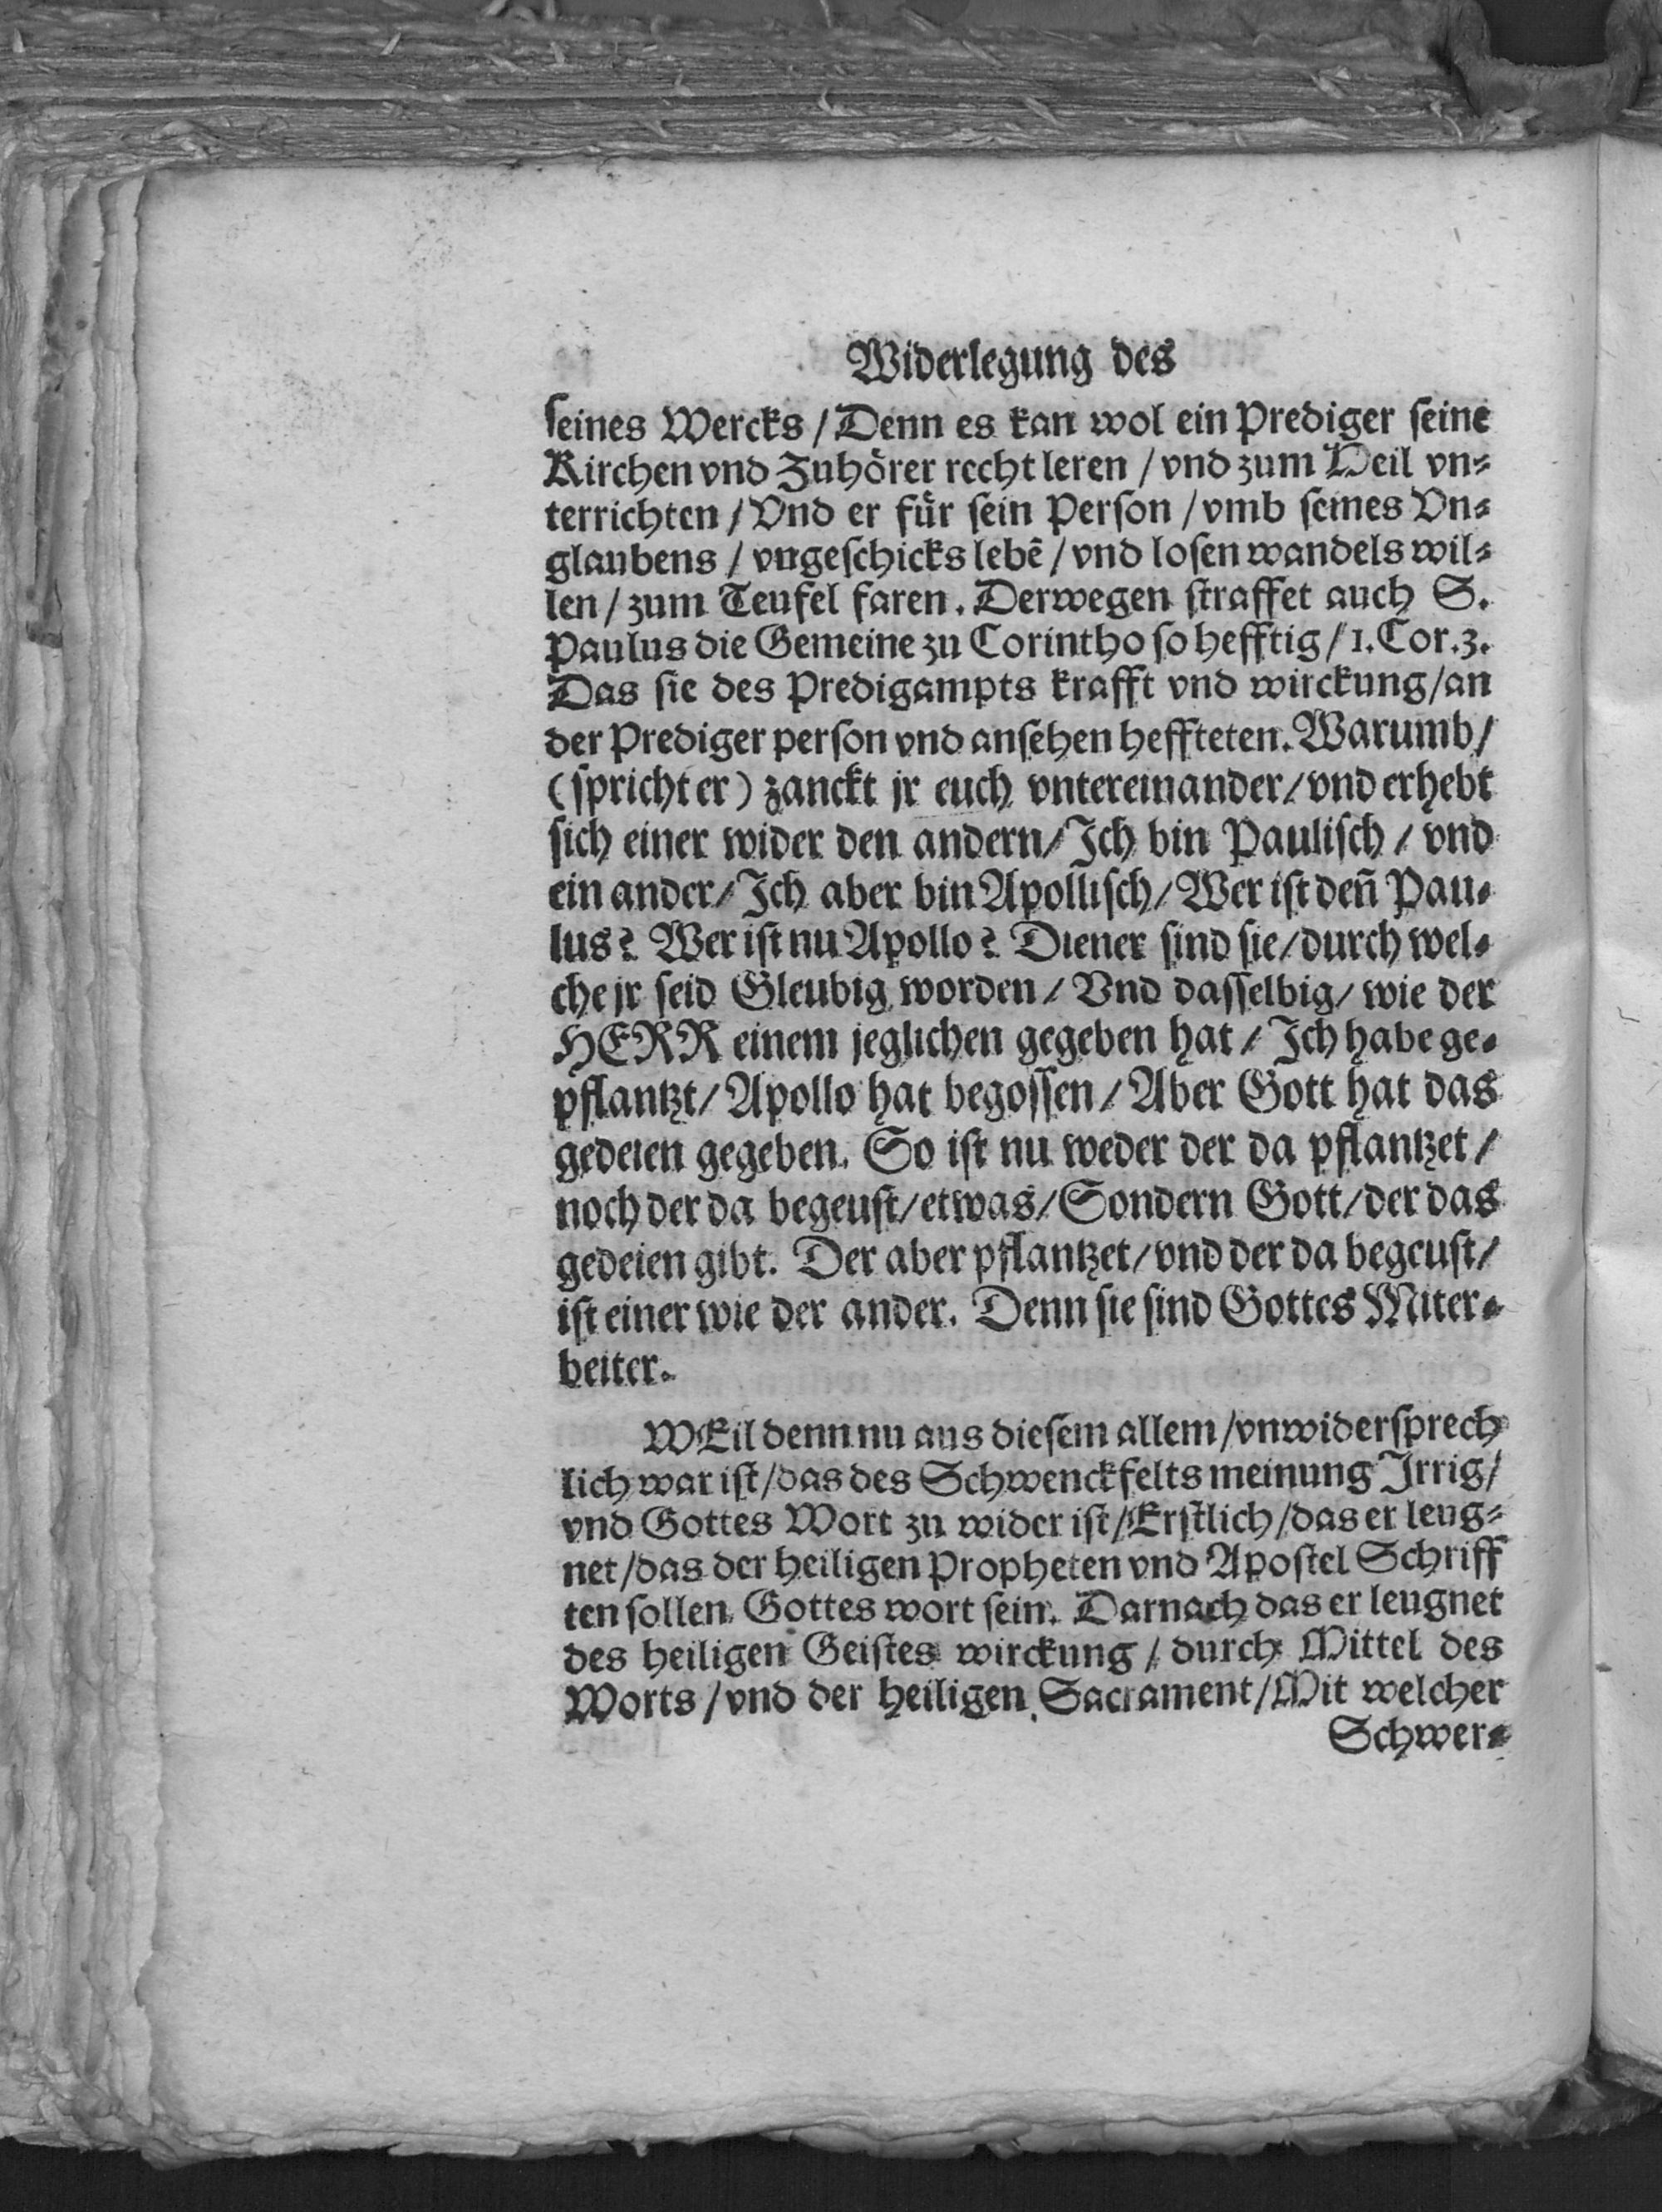 Widerlegung des
seines Wercks / Denn es kan wol ein Prediger seine
Kirchen vnd Zuhörer recht leren / vnd zum Heil vn-
terrichten / Vnd er für sein Person / vmb seines Vn-
glaubens / vngeschicks lebẽ / vnd losen wandels wil-
len / zum Teufel faren. Derwegen straffet auch S.
Paulus die Gemeine zu Corintho so hefftig / 1. Cor. 3.
Das sie des Predigampts krafft vnd wirckung / an
der Prediger person vnd ansehen heffteten. Warumb /
(spricht er) zanckt jr euch vntereinander / vnd erhebt
sich einer wider den andern / Ich bin Paulisch / vnd
ein ander / Ich aber bin Apollisch / Wer ist den̄ Pau-
lus? Wer ist nu Apollo? Diener sind sie / durch wel-
che jr seid Gleubig worden / Vnd dasselbig / wie der
HERR einem jeglichen gegeben hat / Ich habe ge-
pflantzt / Apollo hat begossen / Aber Gott hat das
gedeien gegeben. So ist nu weder der da pflantzet /
noch der da begeust / etwas / Sondern Gott / der das
gedeien gibt. Der aber pflantzet / vnd der da begeust /
ist einer wie der ander. Denn sie sind Gottes Miter-
beiter.
WEil denn nu aus diesem allem / vnwidersprech
lich war ist / das des Schwenckfelts meinung Irrig /
vnd Gottes Wort zu wider ist / Erstlich / das er leug-
net / das der heiligen Propheten vnd Apostel Schriff
ten sollen Gottes wort sein. Darnach das er leugnet
des heiligen Geistes wirckung / durch Mittel des
Worts / vnd der heiligen Sacrament / Mit welcher
Schwer-